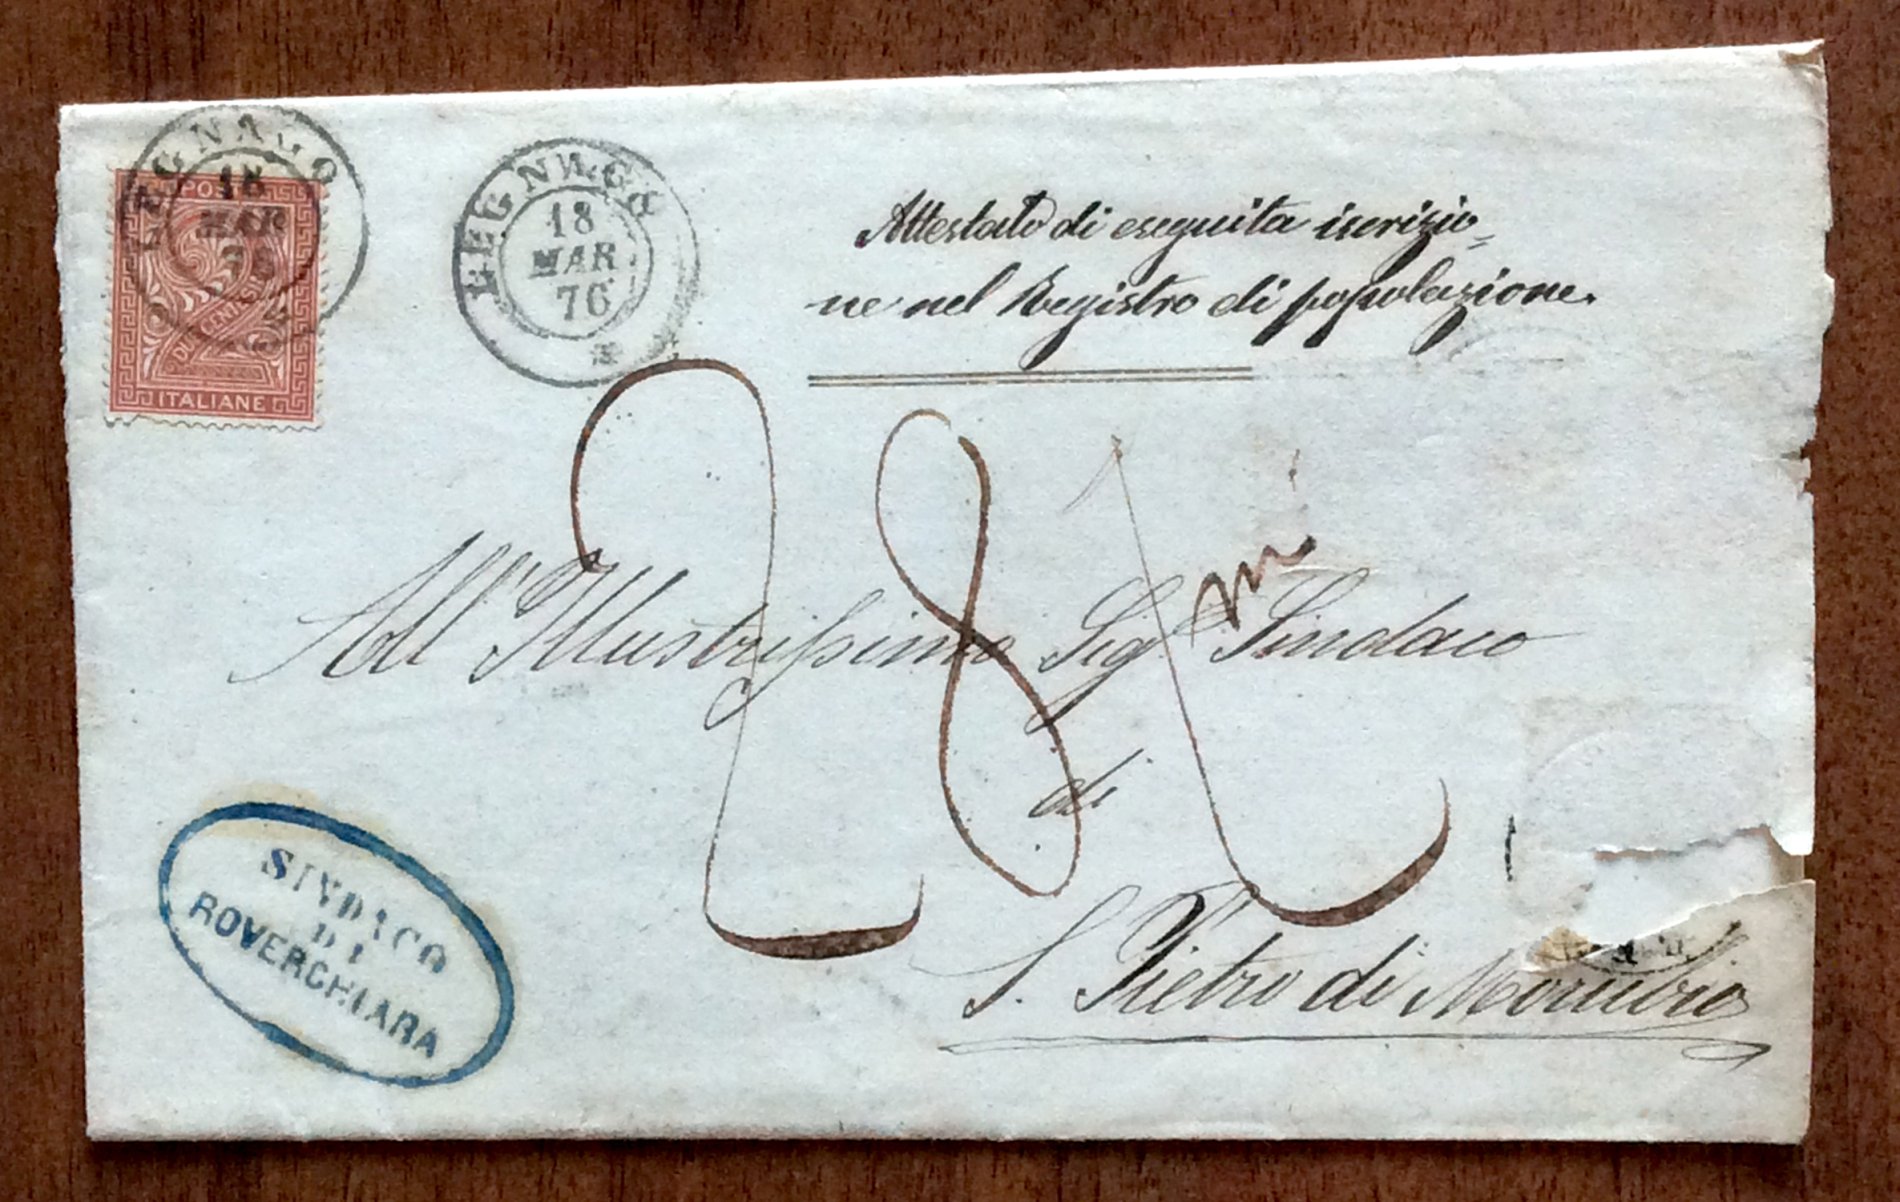 LEGNAGO
18
MAR
76
POS
DUE CENTESIMI
2
ITALIANE
LEGNAGO
18
MAR
76
Attestato di eseguita iscrizio=
ne nel Registro di popolazione.
281
All'Illustrissimo Sigr. Sindaco
di
S. Pietro di Morubio
SINDACO
DI
ROVERCHIARA